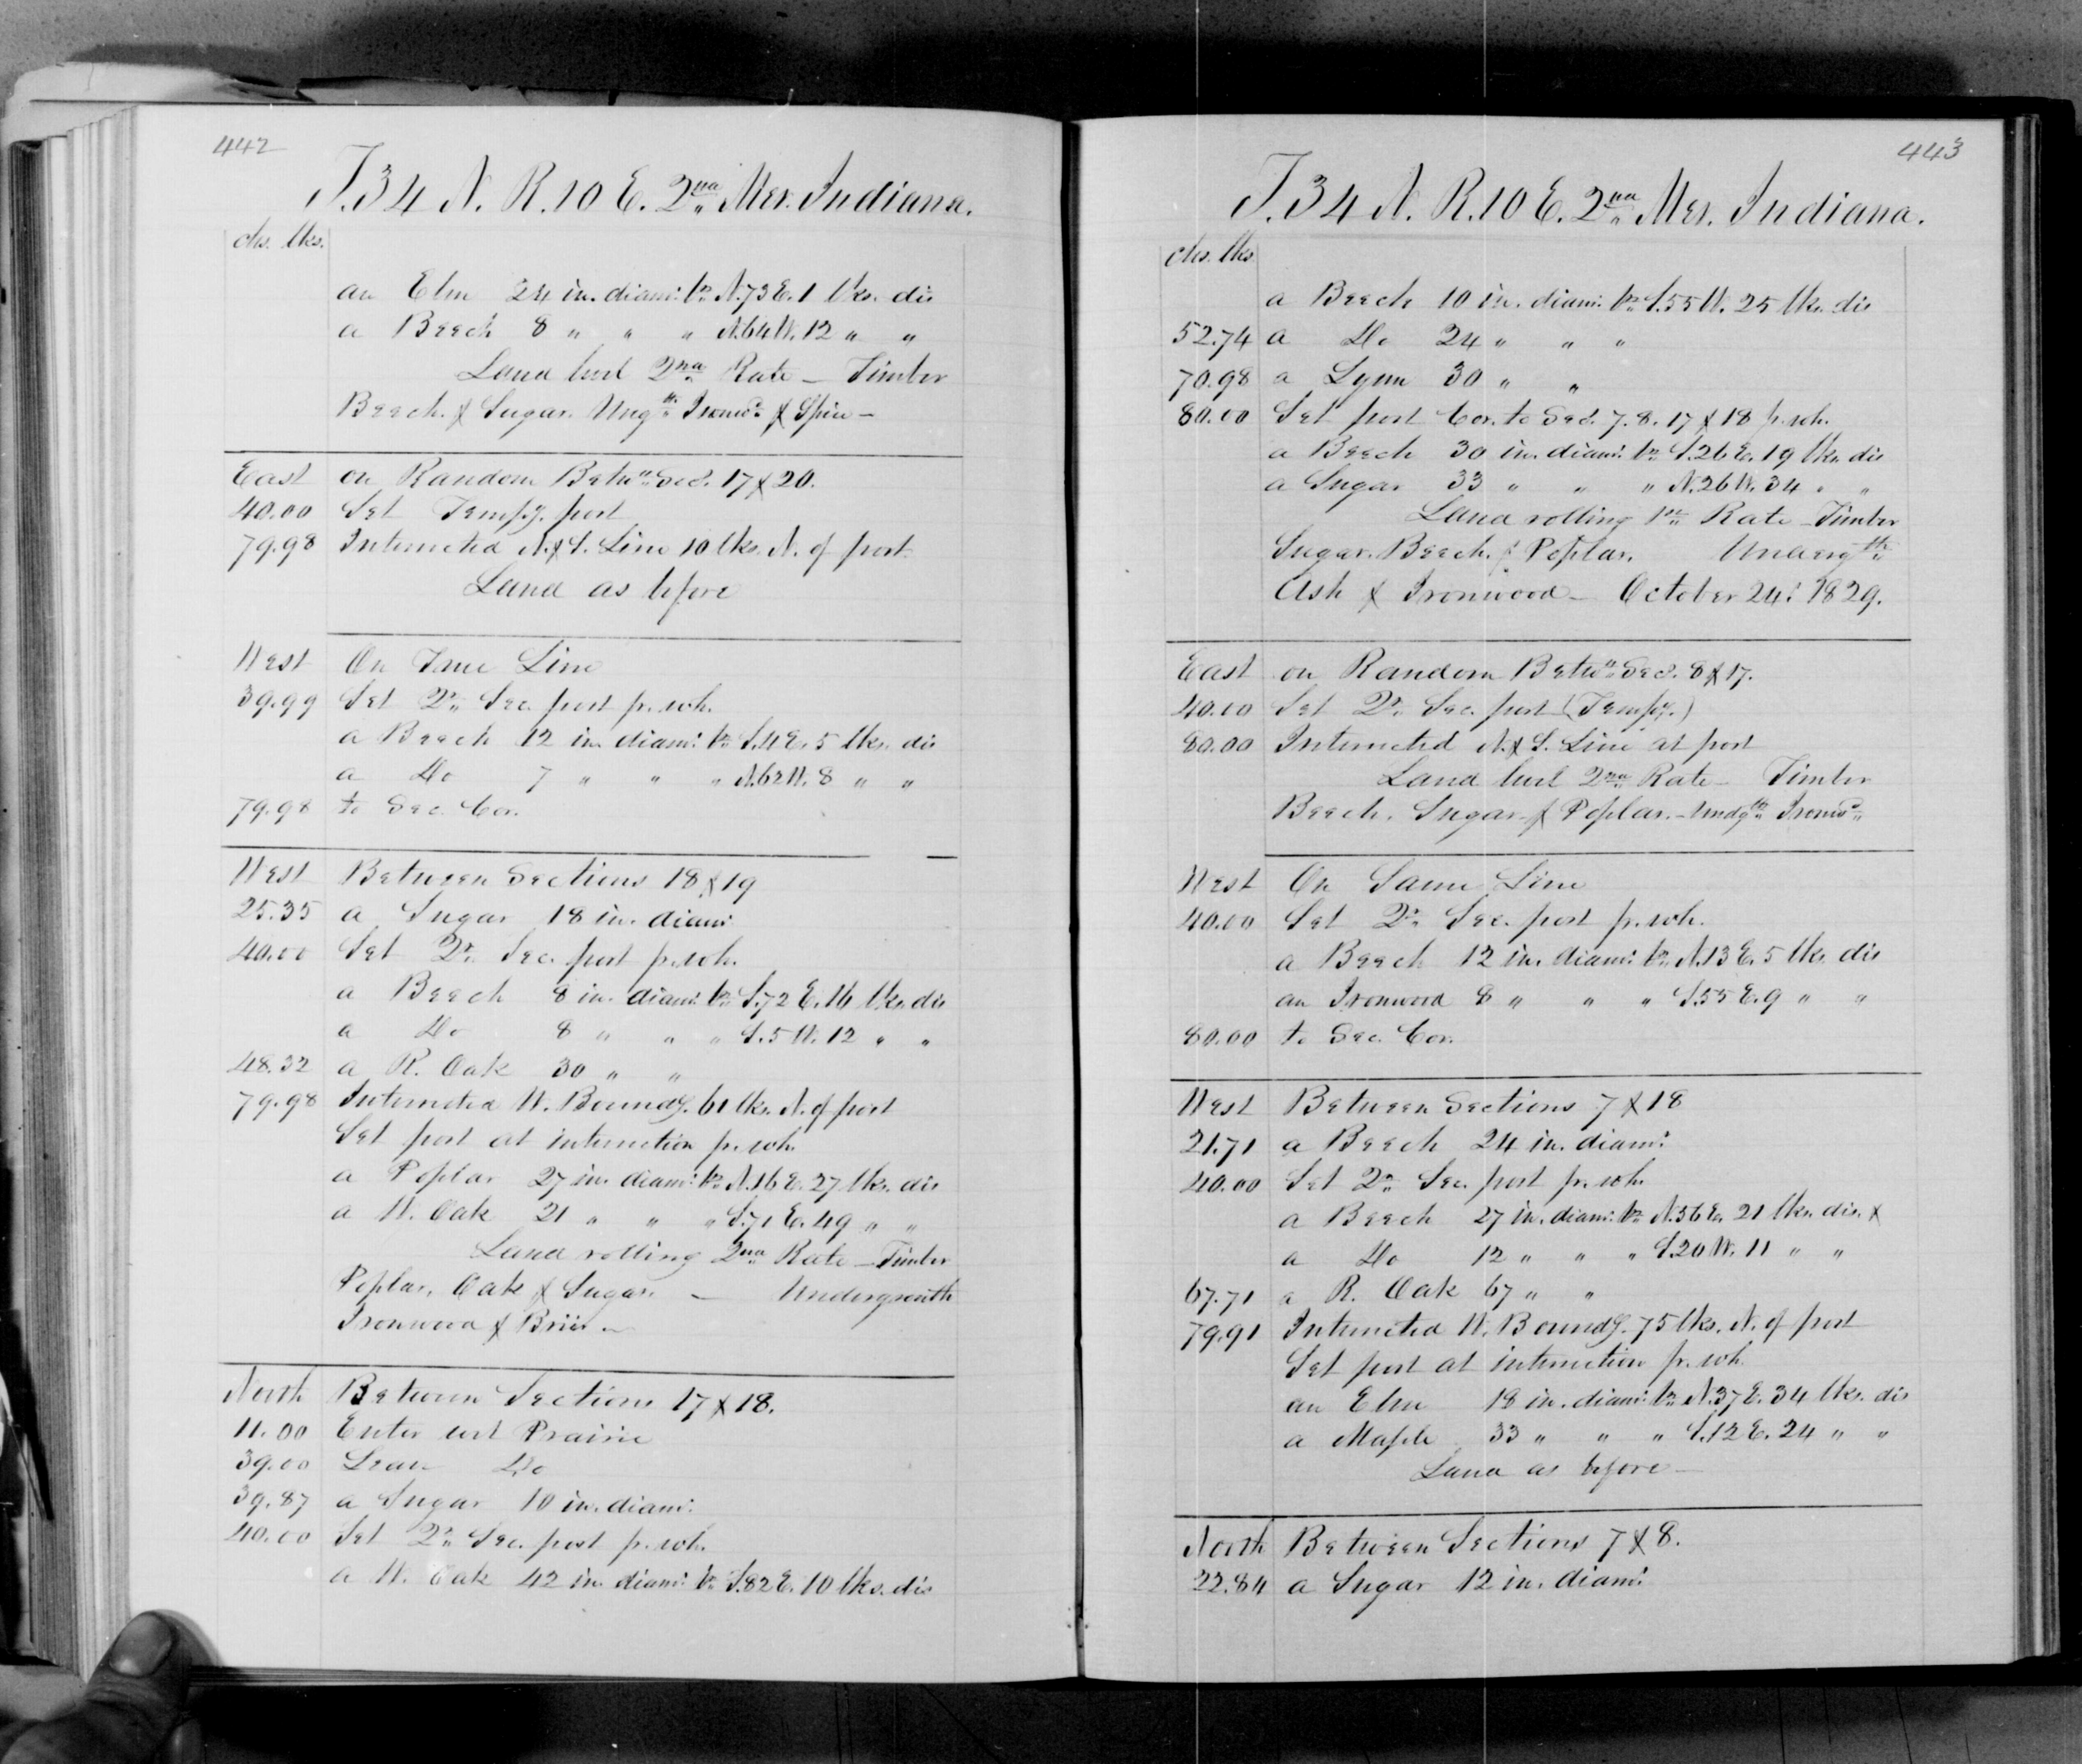 442
T.34 N. R.10 E. 2nd Mer. Indiana.
chs. lks.
an Elm 24 in. diam: br N.73 E. 1 lks. dis
a Beech 8 " " " N.64 W. 12 " "
Land level 2nd Rate — Timber
Beech & Sugar. Ungth Ironwd & Spice —
East on Random Betwn Secs. 17 & 20.
40.00 Set Tempy. post
79.98 Intersected N. & S. Line 10 lks. N. of post
Land as before
West On True Line
39.99 Set Qr Sec. post fr. wh.
a Beech 12 in. diam: br S.4 E. 5 lks. dis
a Do 7 " " " N.62 W. 8 " "
79.98 to Sec. Cor.
West Between Sections 18 & 19
25.35 a Sugar 18 in. diam:
40.00 Set Qr Sec. post fr. wh.
a Beech 8 in. diam: br S.72 E. 16 lks. dis
a Do 8 " " " S.5 W. 12 " "
48.32 a R. Oak 30 " "
79.98 Intersected W. Boundy. 61 lks. N. of post
Set post at intersection fr. wh.
a Poplar 27 in. diam: br N.16 E. 27 lks. dis
a W. Oak 21 " " " S.71 E. 49 " "
Land rolling 2nd Rate — Timber
Poplar, Oak & Sugar. — Undergrowth
Ironwood & Brier —
North Between Sections 17 & 18.
11.00 Enter wet Prairie
39.00 Leave Do
39.87 a Sugar 10 in. diam:
40.00 Set Qr Sec. post fr. wh.
a W. Oak 42 in. diam: br S.82 E. 10 lks. dis
443
T.34 N. R.10 E. 2nd Mer. Indiana.
chs. lks
a Beech 10 in. diam: br S.55 W. 25 lks. dis
52.74 a Do 24 " " "
70.98 a Lynn 30 " "
80.00 Set post Cor. to Secs. 7. 8. 17 & 18 fr. wh.
a Beech 30 in. diam: br S.26 E. 19 lks. dis
a Sugar 33 " " " N.26 W. 34 " "
Land rolling 1st Rate — Timber
Sugar. Beech. & Poplar. Undergth
Ash & Ironwood — October 24: 1829.
East on Random Betwn Secs. 8 & 17.
40.00 Set Qr Sec. post (Tempy.)
80.00 Intersected N. & S. Line at post
Land level 2nd Rate — Timber
Beech. Sugar & Poplar. — Undgth Ironwd
West On Same Line
40.00 Set Qr Sec. post fr. wh.
a Beech 12 in. diam: br N.13 E. 5 lks. dis
an Ironwood 8 " " " S.55 E. 9 " "
80.00 to Sec. Cor.
West Between Sections 7 & 18
21.71 a Beech 24 in. diam:
40.00 Set Qr Sec. post fr. wh.
a Beech 27 in. diam: br N.56 E. 21 lks. dis. &
a Do 12 " " " S.20 W. 11 " "
67.71 a R. Oak 67 " "
79.91 Intersected W. Boundy. 75 lks. N. of post
Set post at intersection fr. wh.
an Elm 18 in. diam: br N.37 E. 34 lks. dis
a Maple 33 " " " S.12 E. 24 " "
Land as before —
North Between Sections 7 & 8.
22.84 a Sugar 12 in. diam: